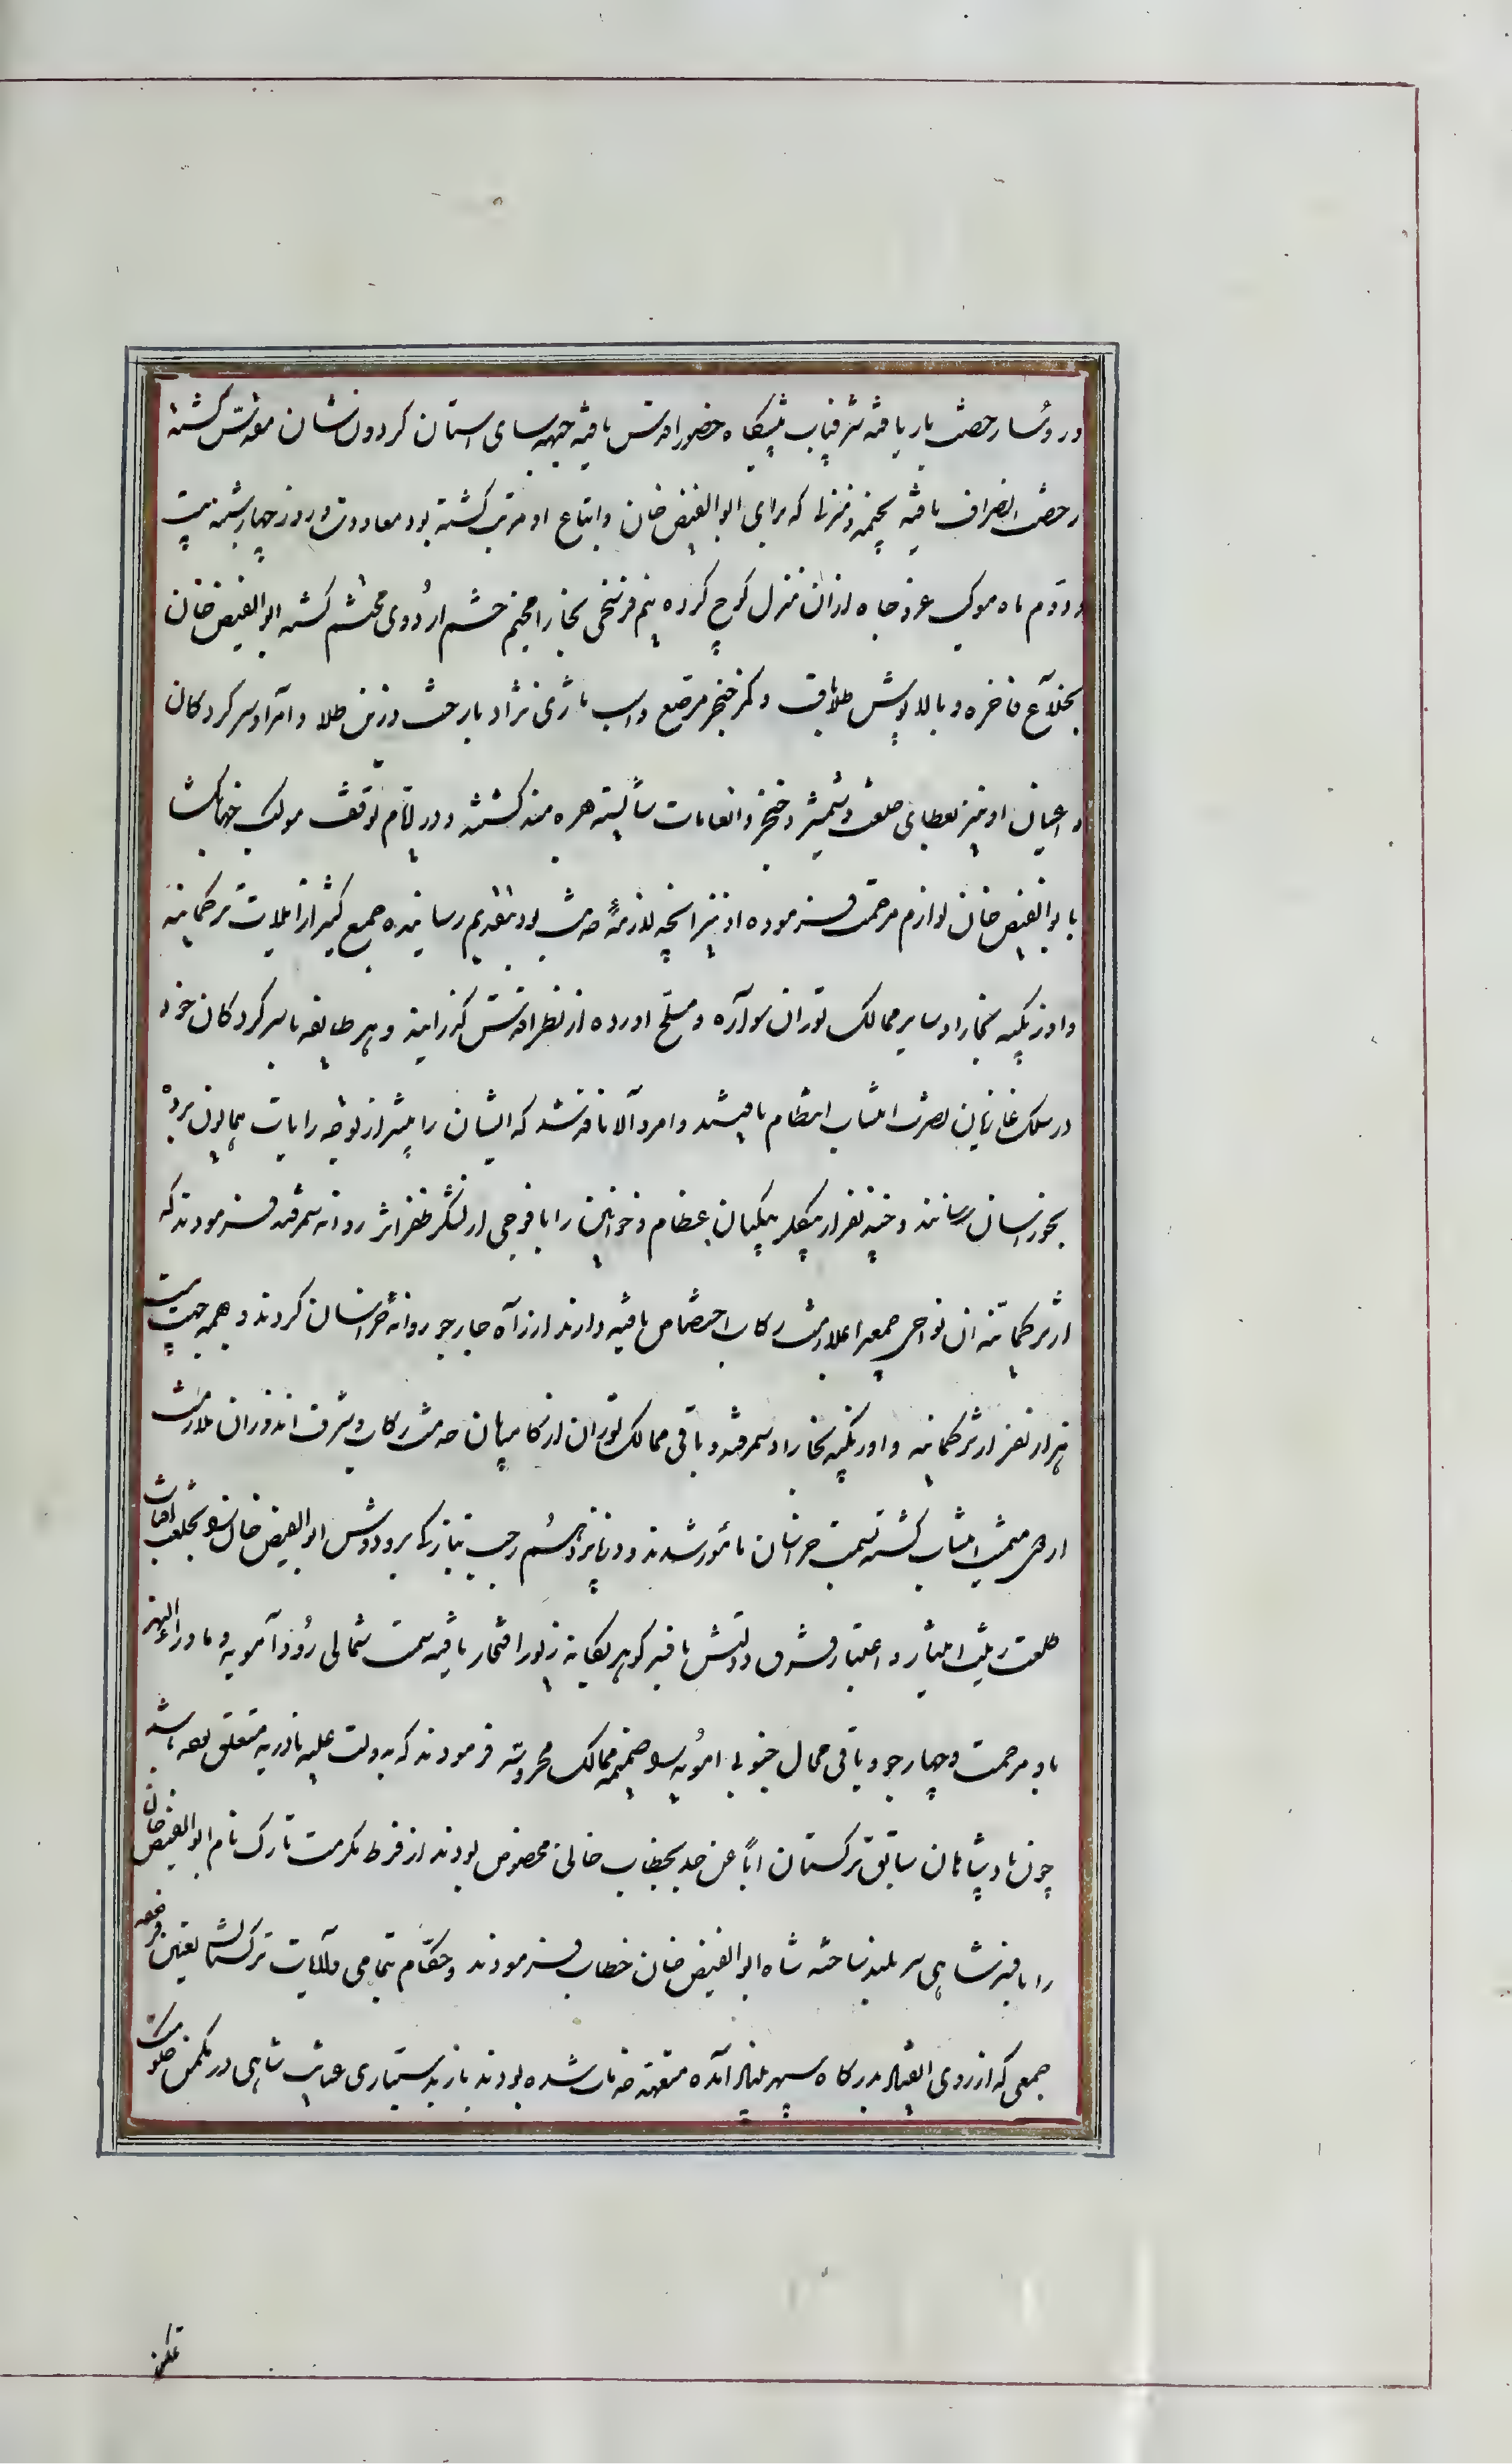 و روسا رخصت بار یافته شرفیاب پیشکاه حضور اقدس یافته جبهه سای استان کردون نشان مقدس کشته
رخصت انصراف یافته بخیمه و منزلی که برای ابوالفیض خان و اتباع او مرتب کشته بود معاودت و روز چهارشنبه بیست
و دوم ماه موکب عز و جاه ازان منزل کوچ کرده نیم فرسخی بخارا مخیم حشم اردوی محتشم کشته ابوالفیض خان
بخلاع فاخره و بالاپوش طلاباف و کمر خنجر مرصع و اسب تازی نژاد با رخت و زین طلا و امرا و سرکردکان
و اعیان او نیز بعطای خلعت و شمشیر و خنجر و انعامات شایسته بهره مند کشتند و در ایام توقف موکب جهانکشا
با ابوالفیض خان لوازم مرحمت فرموده او نیز انچه لازمهٔ خدمت بود بتقدیم رسانیده جمع کثیر از ایلات ترکمانیه
و اوزبکیه بخارا و سایر ممالک توران سواره و مسلح اورده از نظر اقدس کذرانید و هر طایفه با سرکردکان خود
در سلک غازیان نصرت انتساب انتظام یافتند و امر والا نافذ شد که ایشان را پیشتر از توجه رایات همایون برده
بخراسان رسانند و چند نفر از بیکلربیکیان عظام و خوانین را با فوجی از لشکر ظفر اثر روانه سمرقند فرمودند که
از ترکمانیه ان نواحی جمعی را بملازمت رکاب اختصاص یافته دارند از راه چارجو روانهٔ خراسان کردند و همه جهت بیست
هزار نفر از ترکمانیه و اوزبکیه بخارا و سمرقند و باقی ممالک توران از کامیابان خدمت رکاب و شرف اندوزان ملازمت
اردوی میمنت انتساب کشته بسمت خراسان مامور شدند و در پانزدهم رجب تبارک برو دوش ابوالفیض خان بخلعت افتاب
طلعت زینت امتیاز و اعتبار و شرف دولتش یافته کوهر یکانه زیور افتخار یافته سمت شمالی رود آمویه و ماوراء النهر
باو مرحمت و چهارجو و باقی محال جنوبی امویه ضمیمه ممالک محروسه فرمودند که بدولت علیه نادریه متعلق بوده باشد
چون پادشاهان سابق ترکستان اباً عن جد بخطاب خانی مخصوص بودند از فرط مکرمت تارک نام ابوالفیض خان
را بافسر شاهی سربلند ساخته شاه ابوالفیض خان خطاب فرمودند و حکام تمامی ولایات ترکستان تعیین فرموده
جمعی که از روی انقیاد بدرکاه سپهر بنیاد آمده متعهد خدمات شده بودند باز بدستیاری عنایت شاهی در مکمن حکومت
تمکن